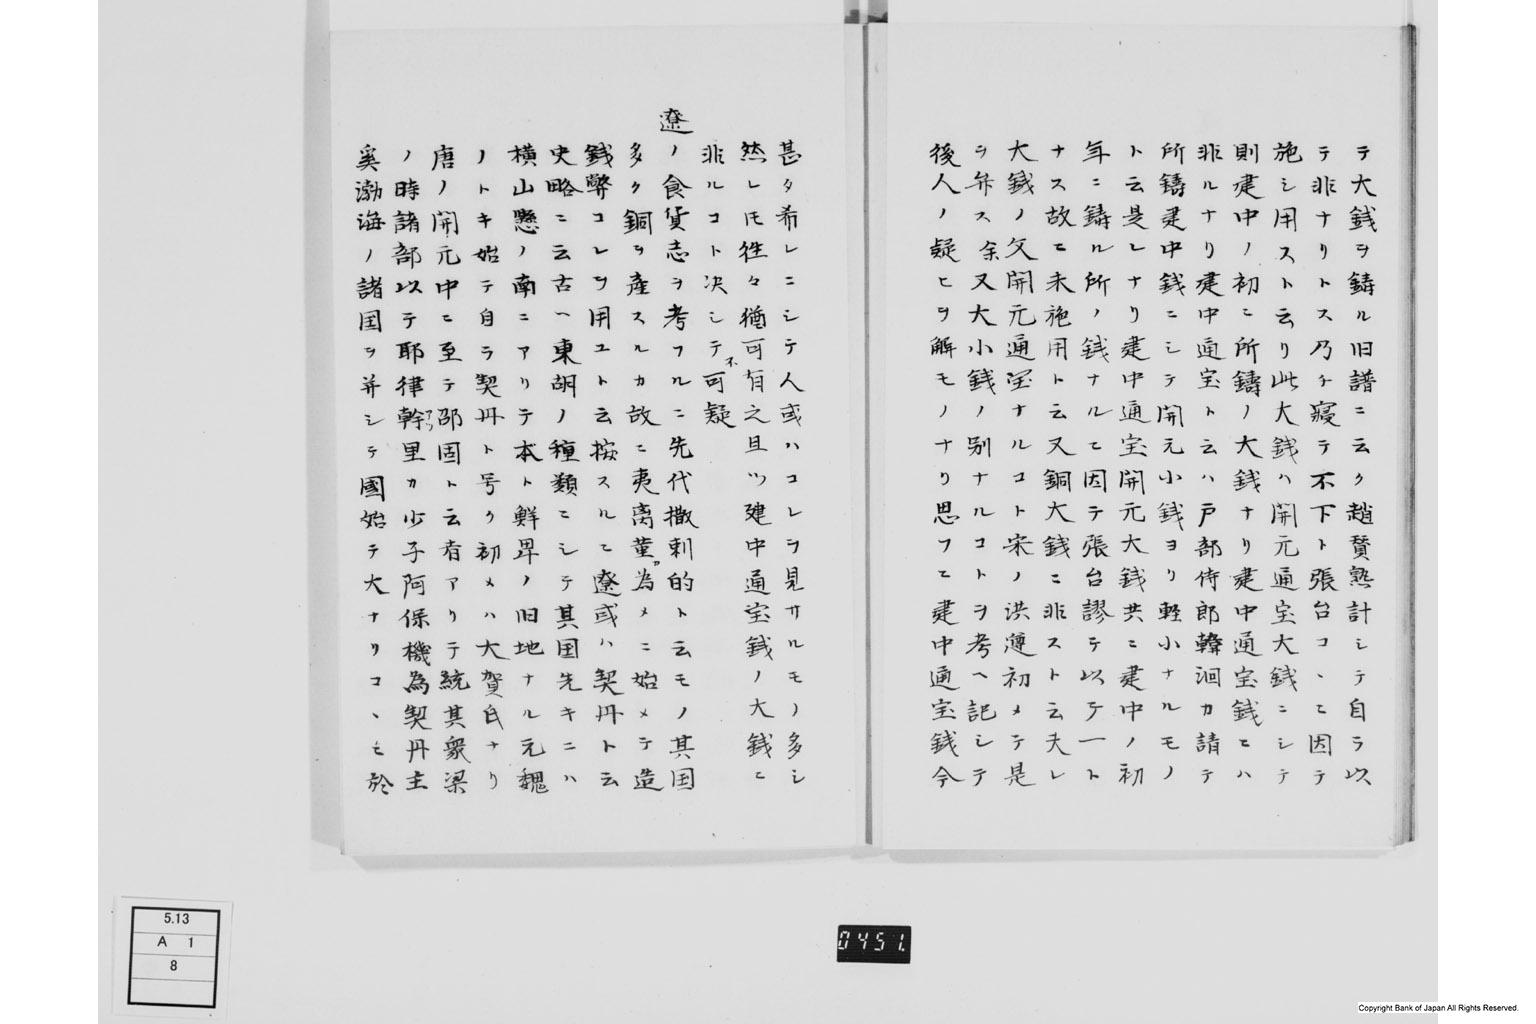 テ大銭ヲ鋳ル旧譜ニ云ク趙賛熟計シテ自ラ以
テ非ナリトス乃チ寝テ不下ト張台コヽニ因テ
施シ用スト云リ此大銭ハ開元通宝大銭ニシテ
則建中ノ初ニ所鋳ノ大銭ナリ建中通宝銭ニハ
非ルナリ建中通宝ト云ハ戸部侍郎韓洄カ請テ
所鋳建中銭ニシテ開元小銭ヨリ軽小ナルモノ
ト云是レナリ建中通宝開元大銭共ニ建中ノ初
年ニ鋳ル所ノ銭ナルニ因テ張台謬テ以テ一ト
ナス故ニ未施用ト云又銅大銭ニ非スト云夫レ
大銭ノ文開元通宝ナルコト宋ノ洪遵初メテ是
ヲ弁ス余又大小銭ノ別ナルコトヲ考ヘ記シテ
後人ノ疑ヒヲ解モノナリ思フニ建中通宝銭今
甚タ希レニシテ人或ハコレヲ見サルモノ多シ
然レ𪜈往々猶可有之且ツ建中通宝銭ノ大銭ニ
非ルコト決シテ不可疑
遼ノ食貨志ヲ考フルニ先代撒剌的ト云モノ其国
多ク銅ヲ産スルカ故ニ夷离菫為メニ始メテ造
銭幣コレヲ用ユト云按スルニ遼或ハ契丹ト云
史略ニ云古ヘ東胡ノ種類ニシテ其国先キニハ
横山懸ノ南ニアリテ本ト鮮卑ノ旧地ナル元魏
ノトキ始テ自ラ契丹ト号ク初メハ大賀氏ナリ
唐ノ開元中ニ至テ邵固ト云者アリテ統其衆梁
ノ時諸部以テ耶律斡里カ少子阿保機為契丹主
奚渤海ノ諸国ヲ并シテ國始テ大ナリコヽモ於
5.13
A 1
8
0451.
Copyright Bank of Japan All Rights Reserved.